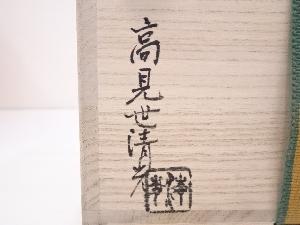 高見世清光